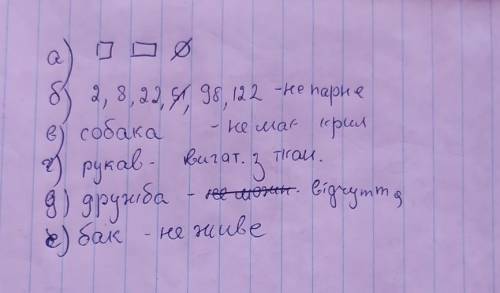 а) □ ▭ ⌀
б) 2, 8, 22, 51, 98, 122 - не парне
в) собака - не має крил
г) рукав - вигат. з ткан.
д) дружба - не можн - відчуття
е) бак - не живе